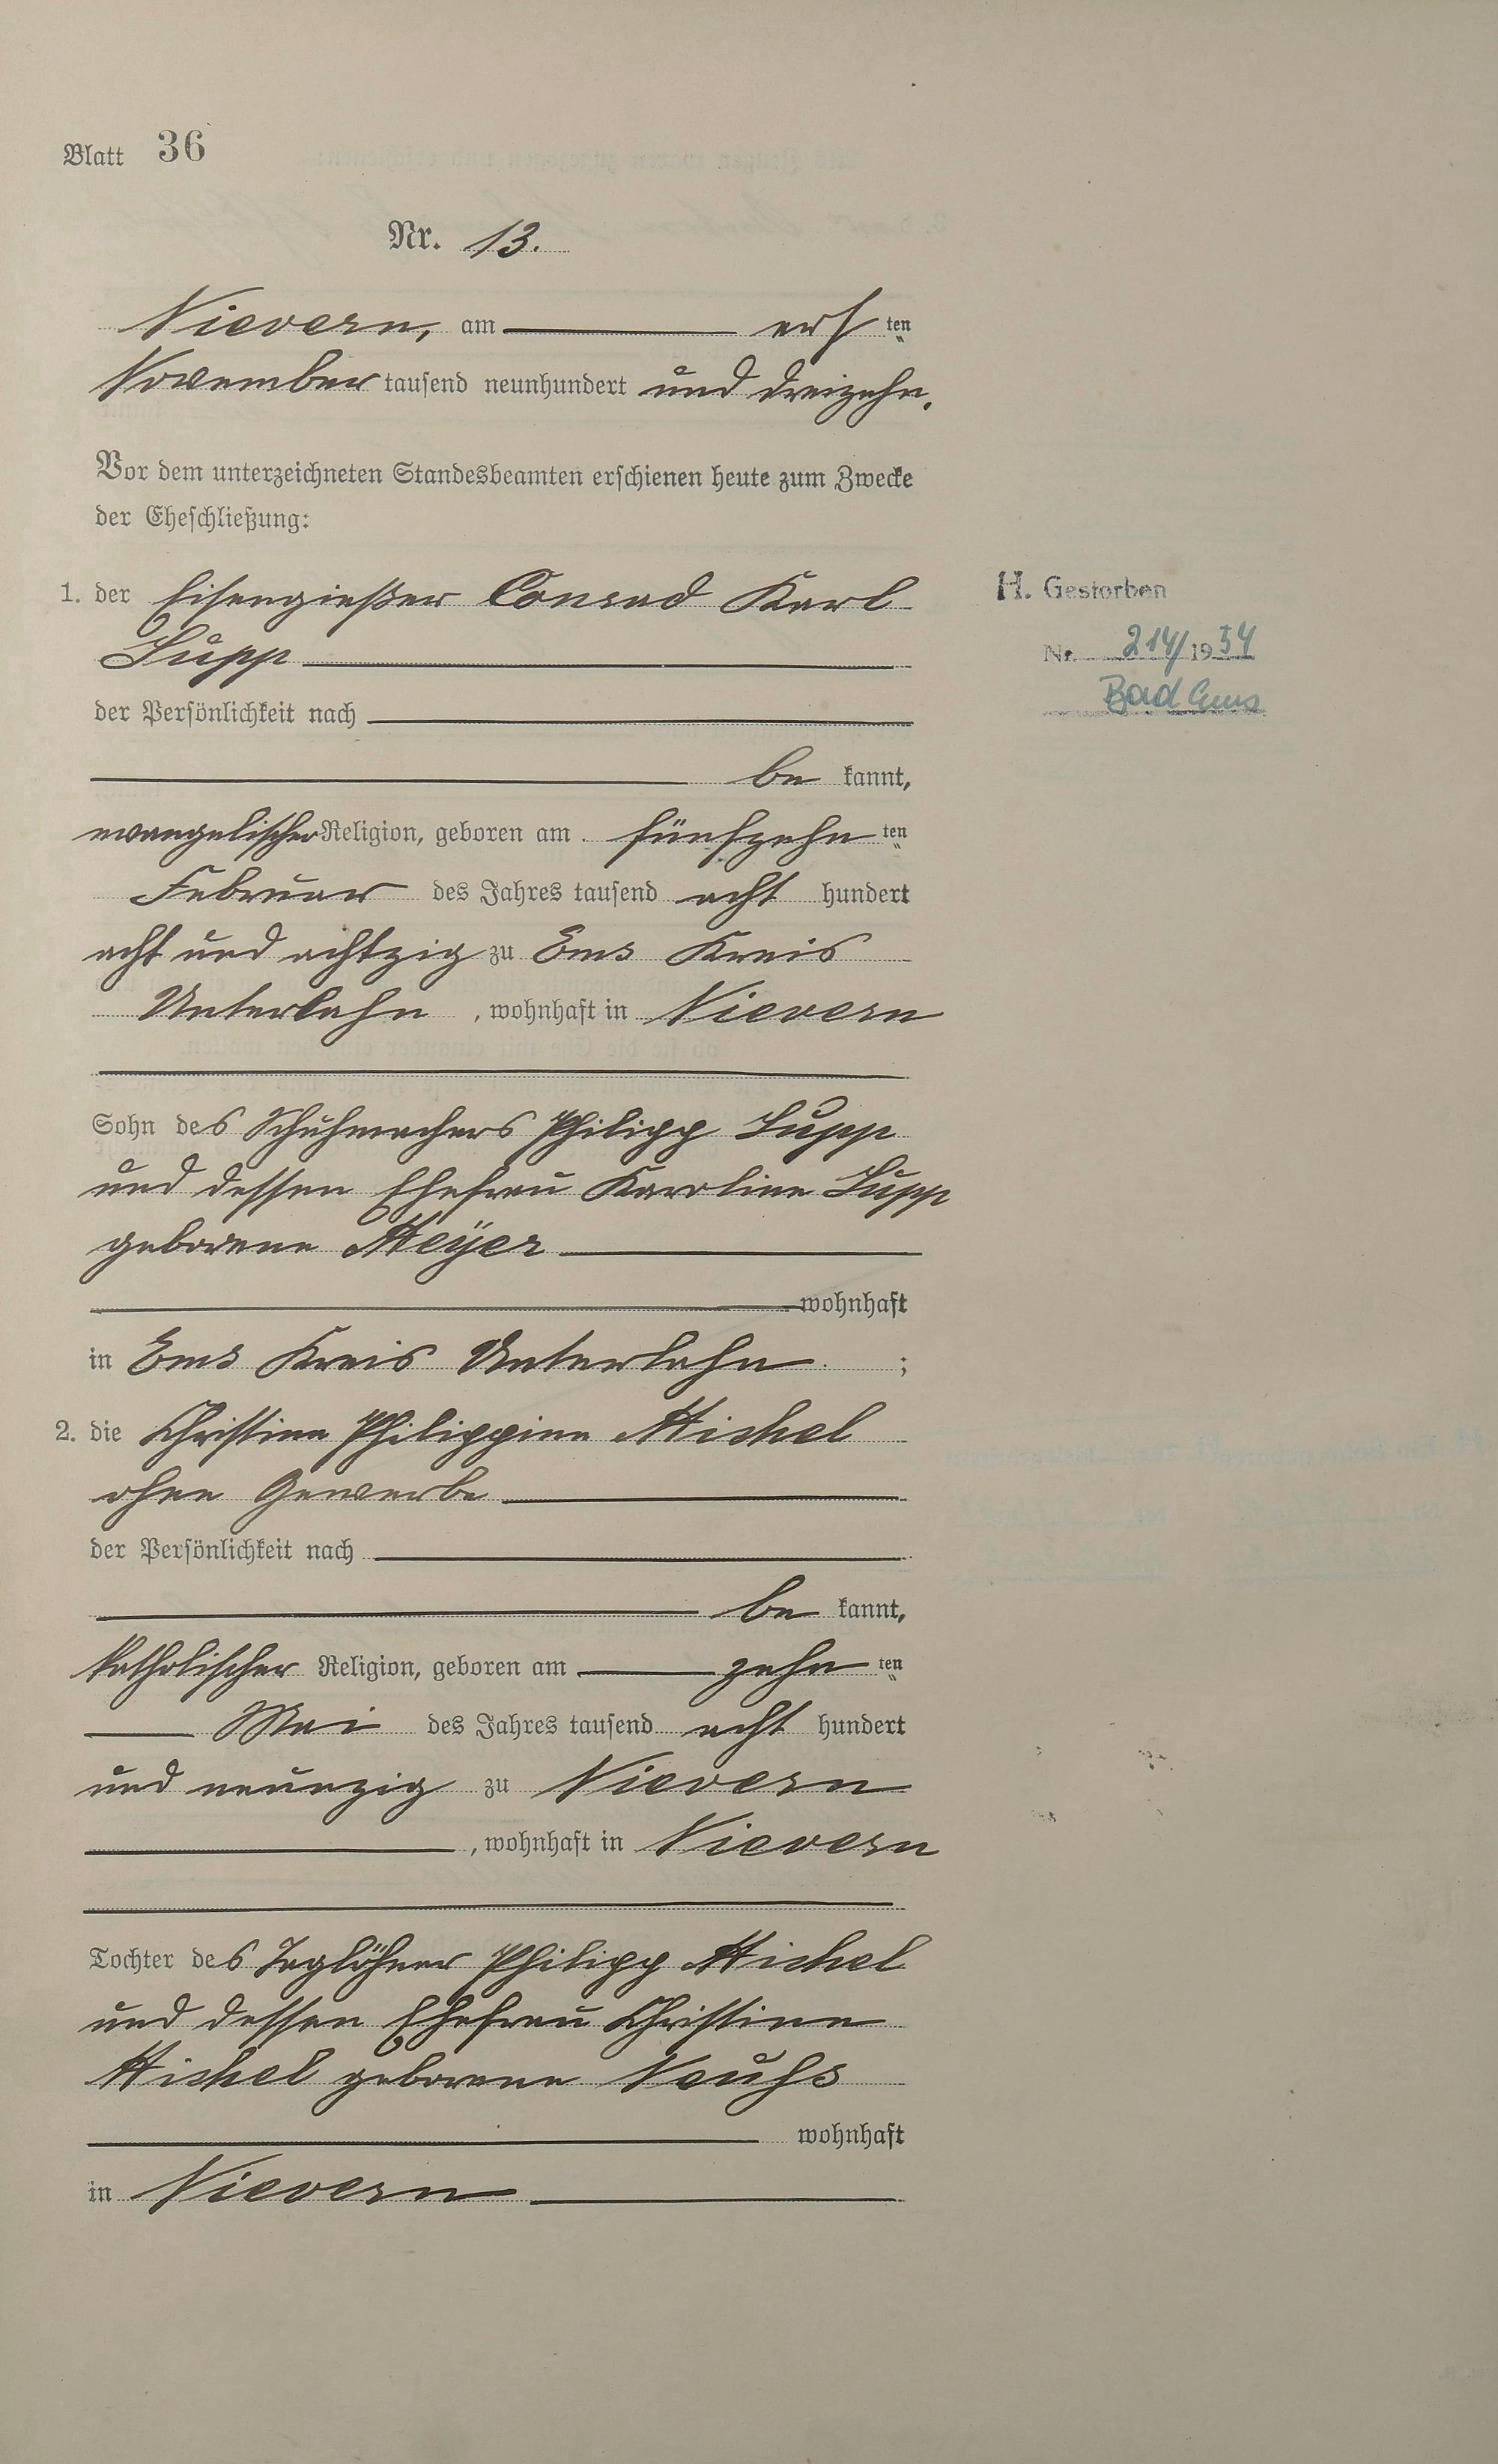 Blatt 36
Nr. 13.
Nievern, am ersten
November tausend neunhundert und dreizehn.
Vor dem unterzeichneten Standesbeamten erschienen heute zum Zwecke
der Eheschließung:
1. der Eisengießer Conrad Karl
Lupp
der Persönlichkeit nach
be kannt,
evangelischer Religion, geboren am fünfzehn ten
Februar des Jahres tausend acht hundert
acht und achtzig zu Ems Kreis
Unterlahn, wohnhaft in Nievern
Sohn des Schuhmachers Philipp Lupp
und dessen Ehefrau Karoline Lupp
geborene Meyer
wohnhaft
in Ems Kreis Unterlahn ;
2. die Christine Philippine Michel
ohne Gewerbe
der Persönlichkeit nach
be kannt,
katholischer Religion, geboren am zehn ten
Mai des Jahres tausend acht hundert
und neunzig zu Nievern
, wohnhaft in Nievern
Tochter des Taglöhner Philipp Michel
und dessen Ehefrau Christine
Michel geborene
wohnhaft
in Nievern
H. Gestorben
Nr. 214/1954
Bad Ems